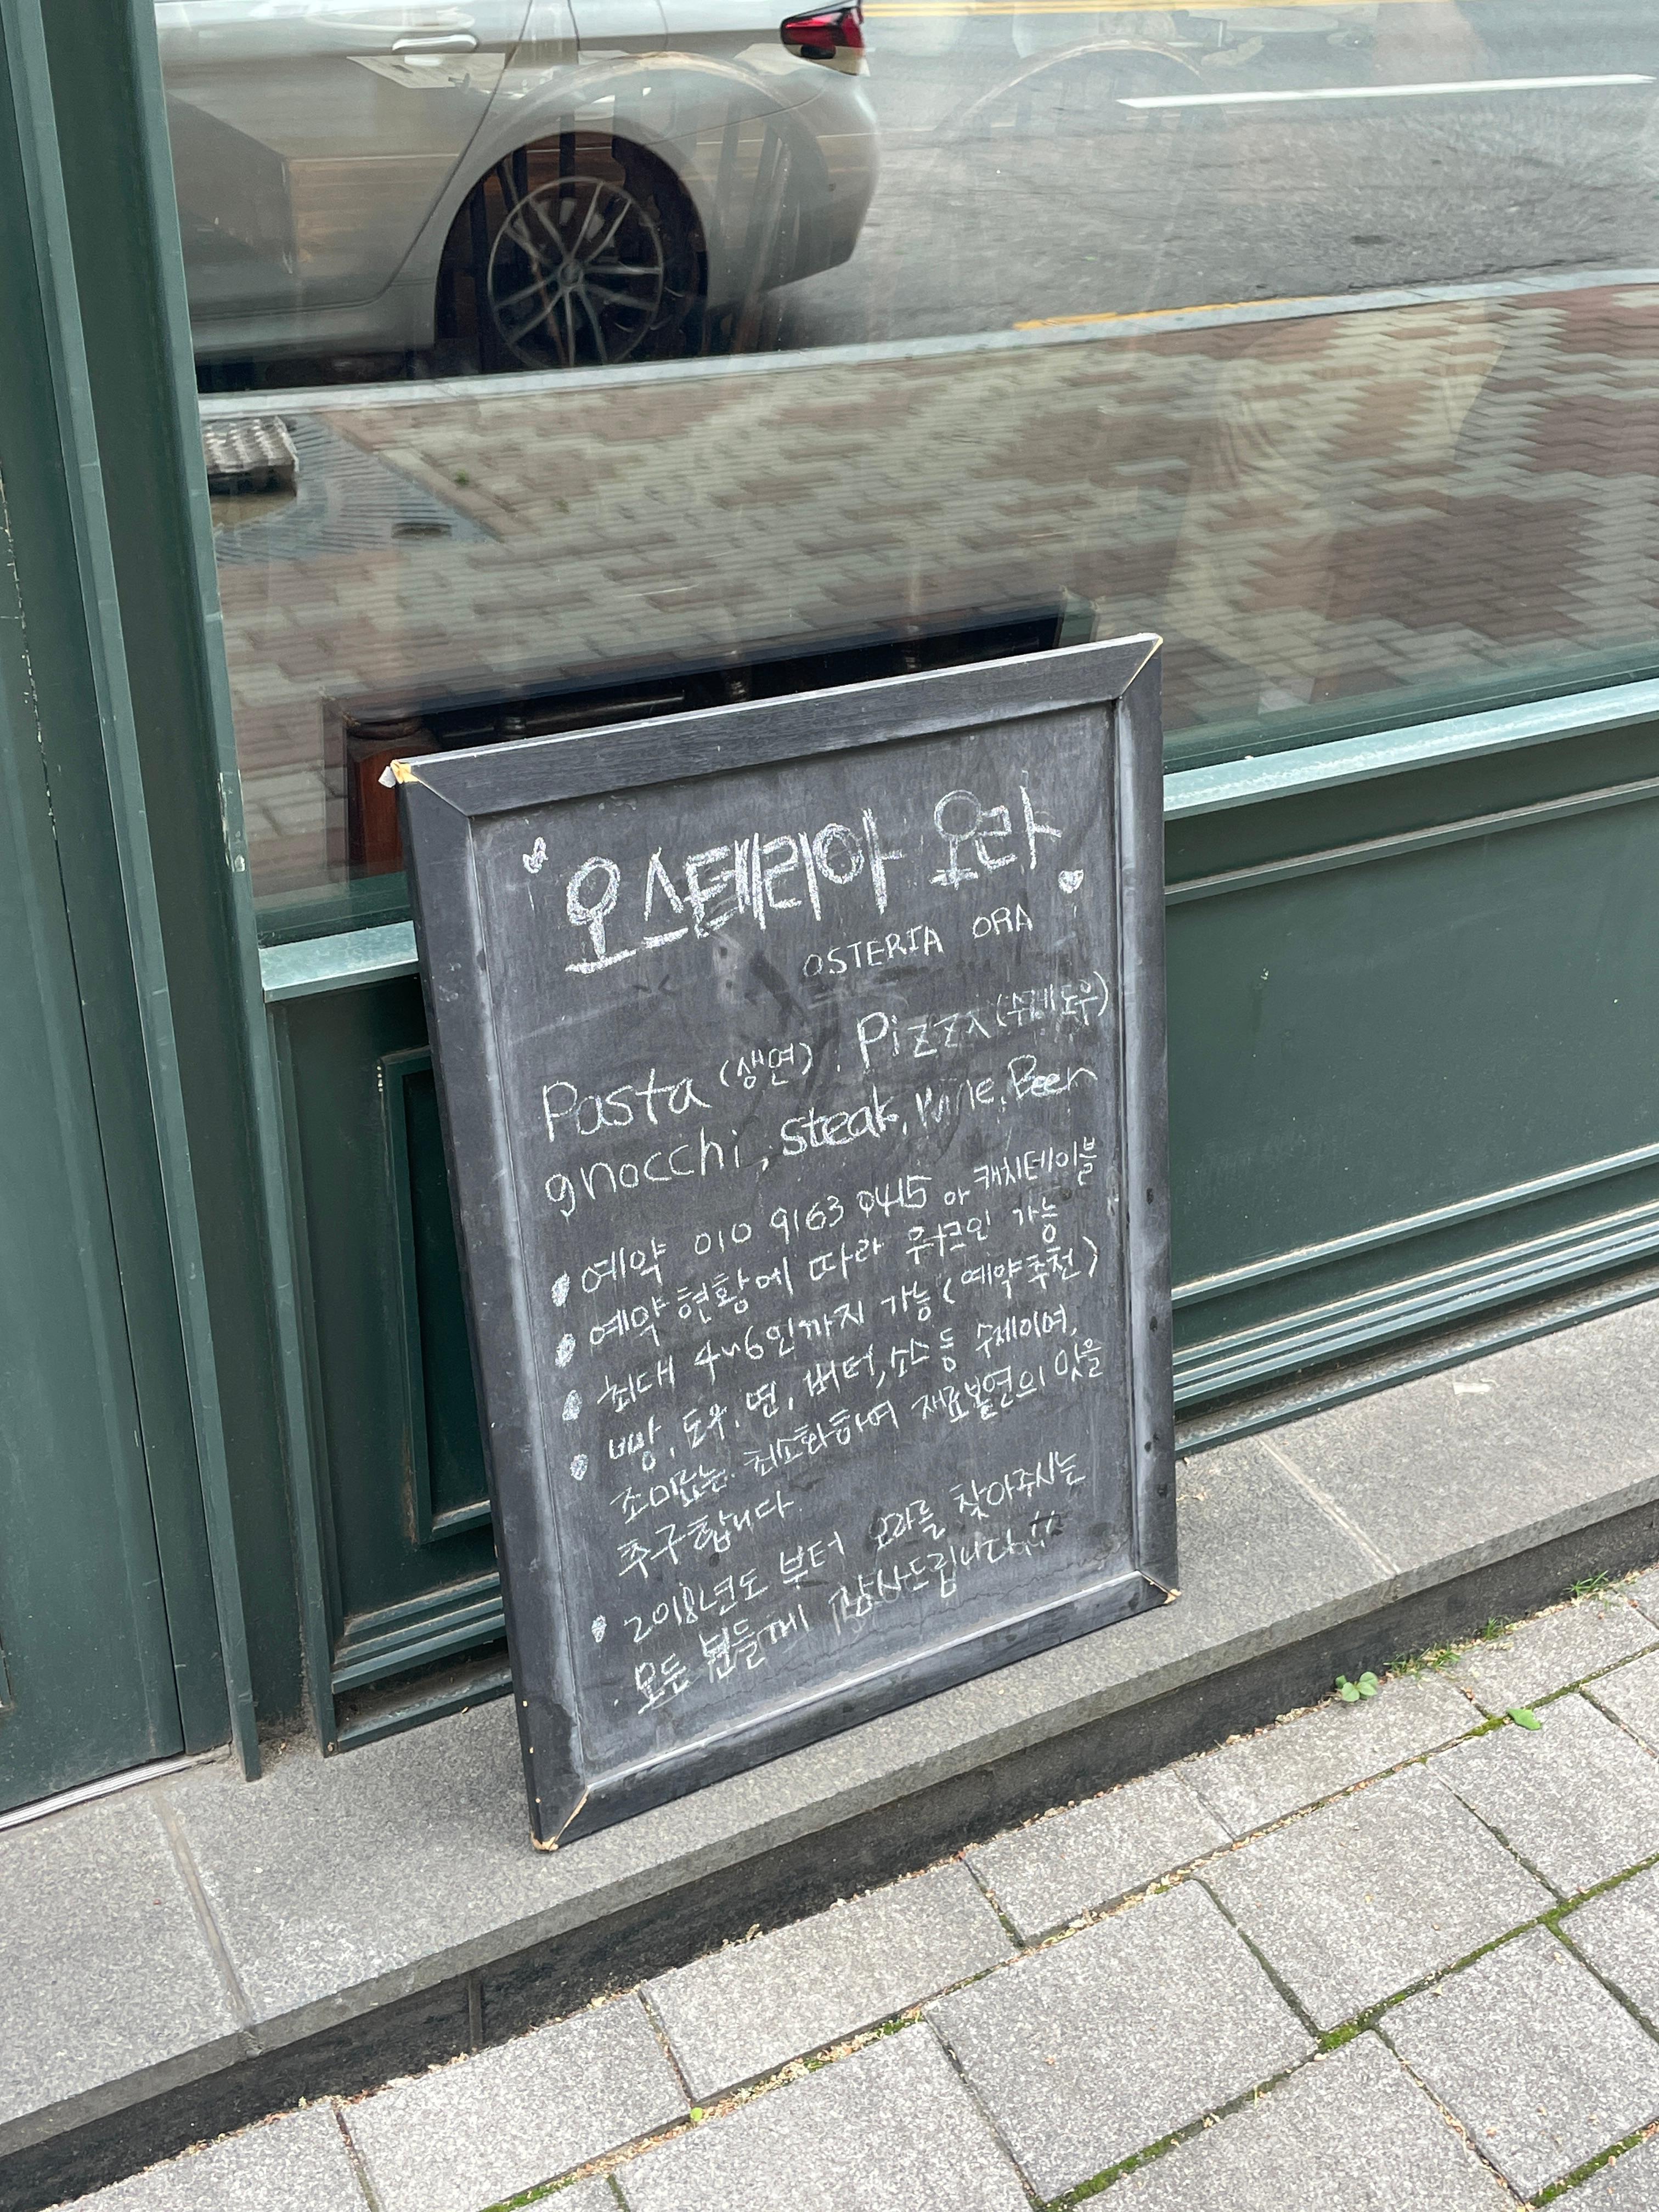 오스테리아 오라
OSTERIA ORA
Pasta (생면). Pizza (수제도우)
gnocchi, steak, Wine, Beer
예약 010 9163 0415 or 캐치테이블
예약 현황에 따라 워크인 가능
최대 4~6인까지 가능 (예약추천)
빵, 도우, 면, 버터, 소스 등 수제이며,
조미료는 최소화하며 재료본연의 맛을
추구합니다.
2018년도 부터 오라를 찾아주시는
모든 분들께 감사드립니다.!!